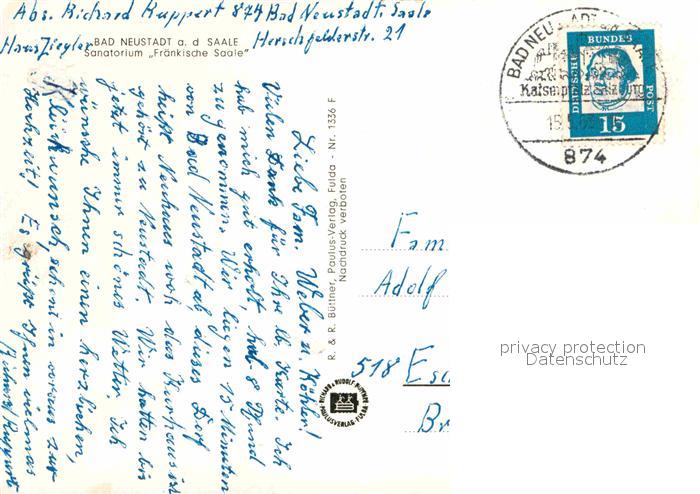 Abs. Richard Ruppert 874 Bad Neustadt, Saale
Haus Ziegler Herschfelderstr. 21
BAD NEUSTADT a. d. SAALE
Sanatorium „Fränkische Saale"
Liebe Fam. Weber u. Köhler!
Vielen Dank für Ihre lb. Karte. Ich
hab mich gut erholt, hab 8 Pfund
zugenommen. Wir liegen 15 Minuten
von Bad Neustadt ab, dieses Dorf
heißt Neuhaus wo das Kurhaus ist
gehört zu Neustadt. Wir hatten bis
jetzt immer schönes Wetter, Ich
wünsche Ihnen einen herzlichen,
Glückwunsch, schon in voraus zur
Hochzeit! Es grüßt Ihnen vielmas
Richard Ruppert
R. & R. Büttner, Paulus-Verlag, Fulda - Nr. 1336 F
Nachdruck verboten
RICHARD & RUDOLF BÜTTNER
PAULUSVERLAG FULDA
BAD NEUSTADT
Kaiserpfalz Salzburg
874
DEUTSCHE BUNDES POST
15
Fam.
Adolf
518 Esc
Br
privacy protection
Datenschutz